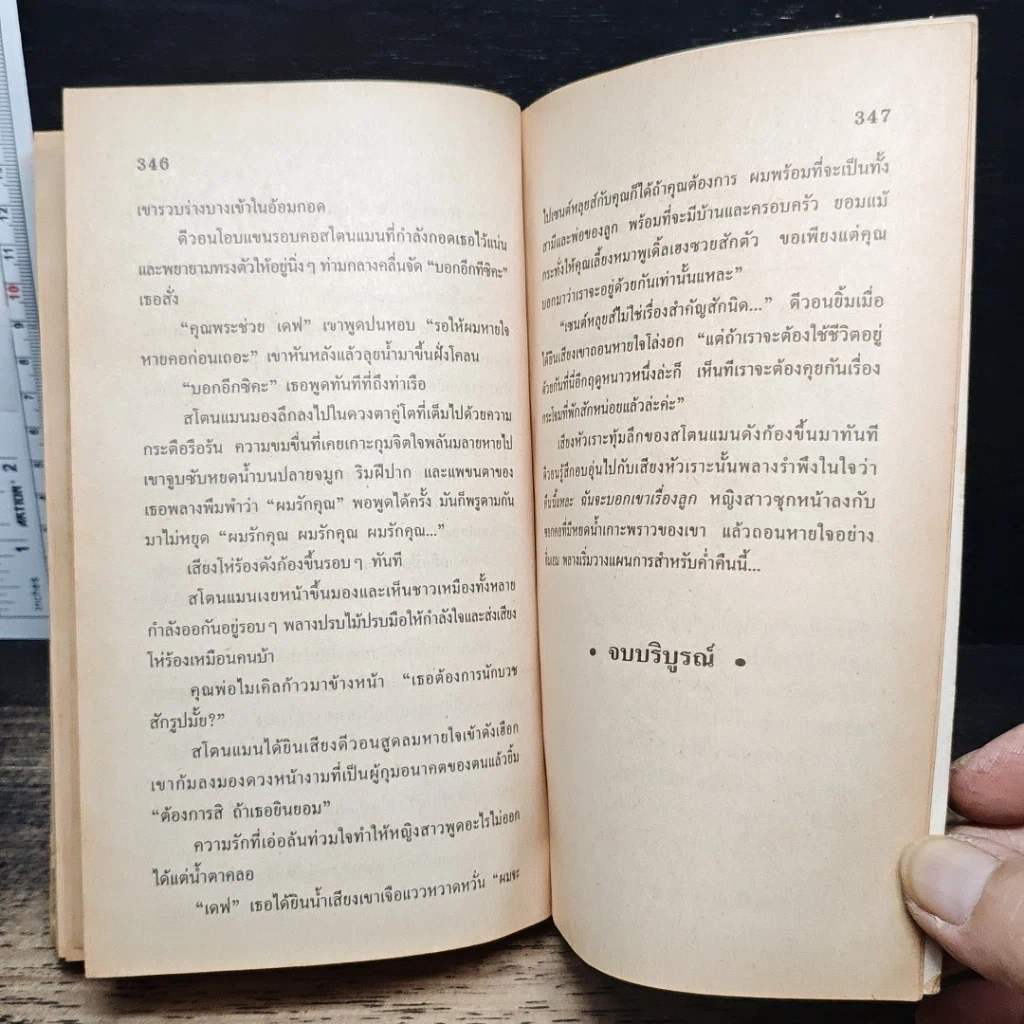 346
เขารวบร่างบางเข้าในอ้อมกอด
ดีวอนโอบแขนรอบคอสโตนแมนที่กำลังกอดเธอไว้แน่น
และพยายามทรงตัวให้อยู่นิ่งๆ ท่ามกลางคลื่นจัด “บอกอีกทีซิคะ”
เธอสั่ง
“คุณพระช่วย เดฟ” เขาพูดปนหอบ “รอให้ผมหายใจ
หายคอก่อนเถอะ” เขาหันหลังแล้วลุยน้ำมาขึ้นฝั่งโคลน
“บอกอีกซิคะ” เธอพูดทันทีที่ถึงท่าเรือ
สโตนแมนมองลึกลงไปในดวงตาคู่โตที่เต็มไปด้วยความ
กระตือรือร้น ความขมขื่นที่เคยเกาะกุมจิตใจพลันมลายหายไป
เขาจูบซับหยดน้ำบนปลายจมูก ริมฝีปาก และแพขนตาของ
เธอพลางพึมพำว่า “ผมรักคุณ” พอพูดได้ครั้ง มันก็พรูตามกัน
มาไม่หยุด “ผมรักคุณ ผมรักคุณ ผมรักคุณ...”
เสียงโห่ร้องดังก้องขึ้นรอบๆ ทันที
สโตนแมนเงยหน้าขึ้นมองและเห็นชาวเหมืองทั้งหลาย
กำลังออกันอยู่รอบๆ พลางปรบไม้ปรบมือให้กำลังใจและส่งเสียง
โห่ร้องเหมือนคนบ้า
คุณพ่อไมเคิลก้าวมาข้างหน้า “เธอต้องการนักบวช
สักรูปมั้ย?”
สโตนแมนได้ยินเสียงดีวอนสูดลมหายใจเข้าดังเฮือก
เขาก้มลงมองดวงหน้างามที่เป็นผู้กุมอนาคตของตนแล้วยิ้ม
“ต้องการสิ ถ้าเธอยินยอม”
ความรักที่เอ่อล้นท่วมใจทำให้หญิงสาวพูดอะไรไม่ออก
ได้แต่น้ำตาคลอ
“เดฟ” เธอได้ยินน้ำเสียงเขาเจือแววหวาดหวั่น “ผมจะ
347
ไปเซนต์หลุยส์กับคุณก็ได้ถ้าคุณต้องการ ผมพร้อมที่จะเป็นทั้ง
สามีและพ่อของลูก พร้อมที่จะมีบ้านและครอบครัว ยอมแม้
กระทั่งให้คุณเลี้ยงหมาพูเดิ้ลเฮงซวยสักตัว ขอเพียงแต่คุณ
บอกมาว่าเราจะอยู่ด้วยกันเท่านั้นแหละ”
“เซนต์หลุยส์ไม่ใช่เรื่องสำคัญสักนิด...” ดีวอนยิ้มเมื่อ
ได้ยินเสียงเขาถอนหายใจโล่งอก “แต่ถ้าเราจะต้องใช้ชีวิตอยู่
ด้วยกันที่นี่อีกฤดูหนาวหนึ่งล่ะก็ เห็นทีเราจะต้องคุยกันเรื่อง
กระโจมที่พักสักหน่อยแล้วล่ะค่ะ”
เสียงหัวเราะทุ้มลึกของสโตนแมนดังก้องขึ้นมาทันที
ดีวอนรู้สึกอบอุ่นไปกับเสียงหัวเราะนั้นพลางรำพึงในใจว่า
คืนนี้แหละ ฉันจะบอกเขาเรื่องลูก หญิงสาวซุกหน้าลงกับ
ซอกคอที่มีหยดน้ำเกาะพราวของเขา แล้วถอนหายใจอย่าง
ชื่นชม พลางเริ่มวางแผนการสำหรับค่ำคืนนี้...
• จบบริบูรณ์ •
12
11
10
9
8
2
1
inches